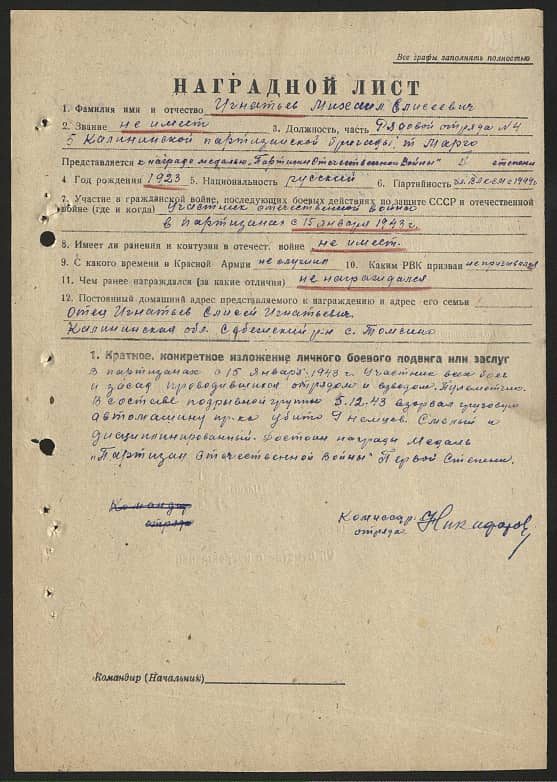 Все графы заполнять полностью
НАГРАДНОЙ ЛИСТ
1. Фамилия имя и отчество Игнатьев Михаил Елисеевич
2. Звание не имеет 3. Должность, часть Рядовой отряда №4
5 Калининской партизанской бригады, т Марго
Представляется к награде медалью "Партизан Отечественной Войны" степени
4 Год рождения 1923 5. Национальность русский 6. Партийность ВЛКСМ с 1944г
7. Участие в гражданской войне, последующих боевых действиях по защите СССР и отечественной
войне (где и когда) Участник отечественной войны
в партизанах с 15 января 1943 г.
8. Имеет ли ранения и контузии в отечест. войне не имеет.
9. С какого времени в Красной Армии не служил 10. Каким РВК призван не призывался
11. Чем ранее награждался (за какие отличия) не награждался
12. Постоянный домашний адрес представляемого к награждению и адрес его семьи
Отец Игнатьев Елисей Игнатьевич
Калининская обл. Себежский р-н с. Томсино
1. Краткое, конкретное изложение личного боевого подвига или заслуг
В партизанах с 15 января 1943 г. Участник всех боев
и засад проводившихся отрядом и взводом. Пулеметчик.
В составе подрывной группы 5.12.43 взорвал грузовую
автомашину пр-ка убито 9 немцев. Смелый и
дисциплинированный. Достоин награды Медаль
„Партизан Отечественной Войны" Первой Степени.
Командир
отряда
Комиссар
отряда Никифоров
Командир (Начальник)